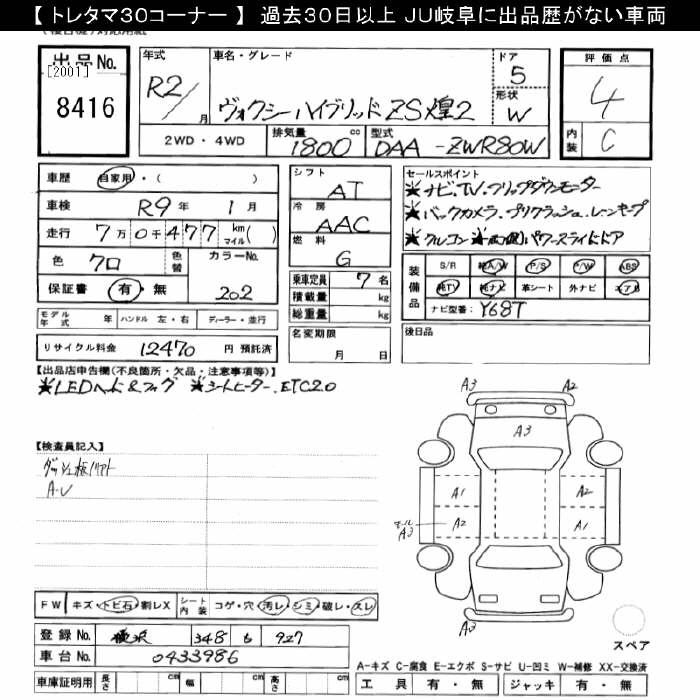 【 トレタマ30コーナー 】 過去30日以上 JU岐阜に出品歴がない車両
出品No.
[2001]
8416
年式
R2/
月
車名・グレード
ヴォクシーハイブリッド ZS煌2
ドア
5
形状
W
2WD・4WD
排気量
1800 cc
型式
DAA-ZWR80W
評価点
4
内装
C
車歴 自家用・( )
車検 R9年 1月
走行 7万0千477 km マイル( )
色 クロ 色替
カラーNo.
202
保証書 有・無
モデル年式 年 ハンドル 左・右 ディーラー・並行
リサイクル料金 12470 円 預託済
シフト
AT
冷房
AAC
燃料
G
乗車定員 7名
積載量 kg
総重量 kg
名変期限
月 日
セールスポイント
★ナビ.TV.フリップダウンモーター
★バックカメラ.プリクラッシュ.レーンキープ
★クルコン ★両側パワースライドドア
装備品
S/R 純A/W P/S P/W ABS
純TV 純ナビ 革シート 外ナビ エアB
ナビ型番: Y68T
後日品
【出品店申告欄(不良箇所・欠品・注意事項等)】
★LEDヘッド&フォグ ★シートヒーター.ETC2.0
【検査員記入】
A-U
A3
A2
A3
A1
A2
A2
A1
モール
A3
A3
スペア
FW キズ・トビ石・割レX シート内装 コゲ・穴・汚レ・シミ・破レ・スレ
登録No. 348 927
車台No. 0433986
車庫証明用 長さ cm 幅 cm 高さ cm
A-キズ C-腐食 E-エクボ S-サビ U-凹ミ W-補修 XX-交換済
工具 有・無 ジャッキ 有・無